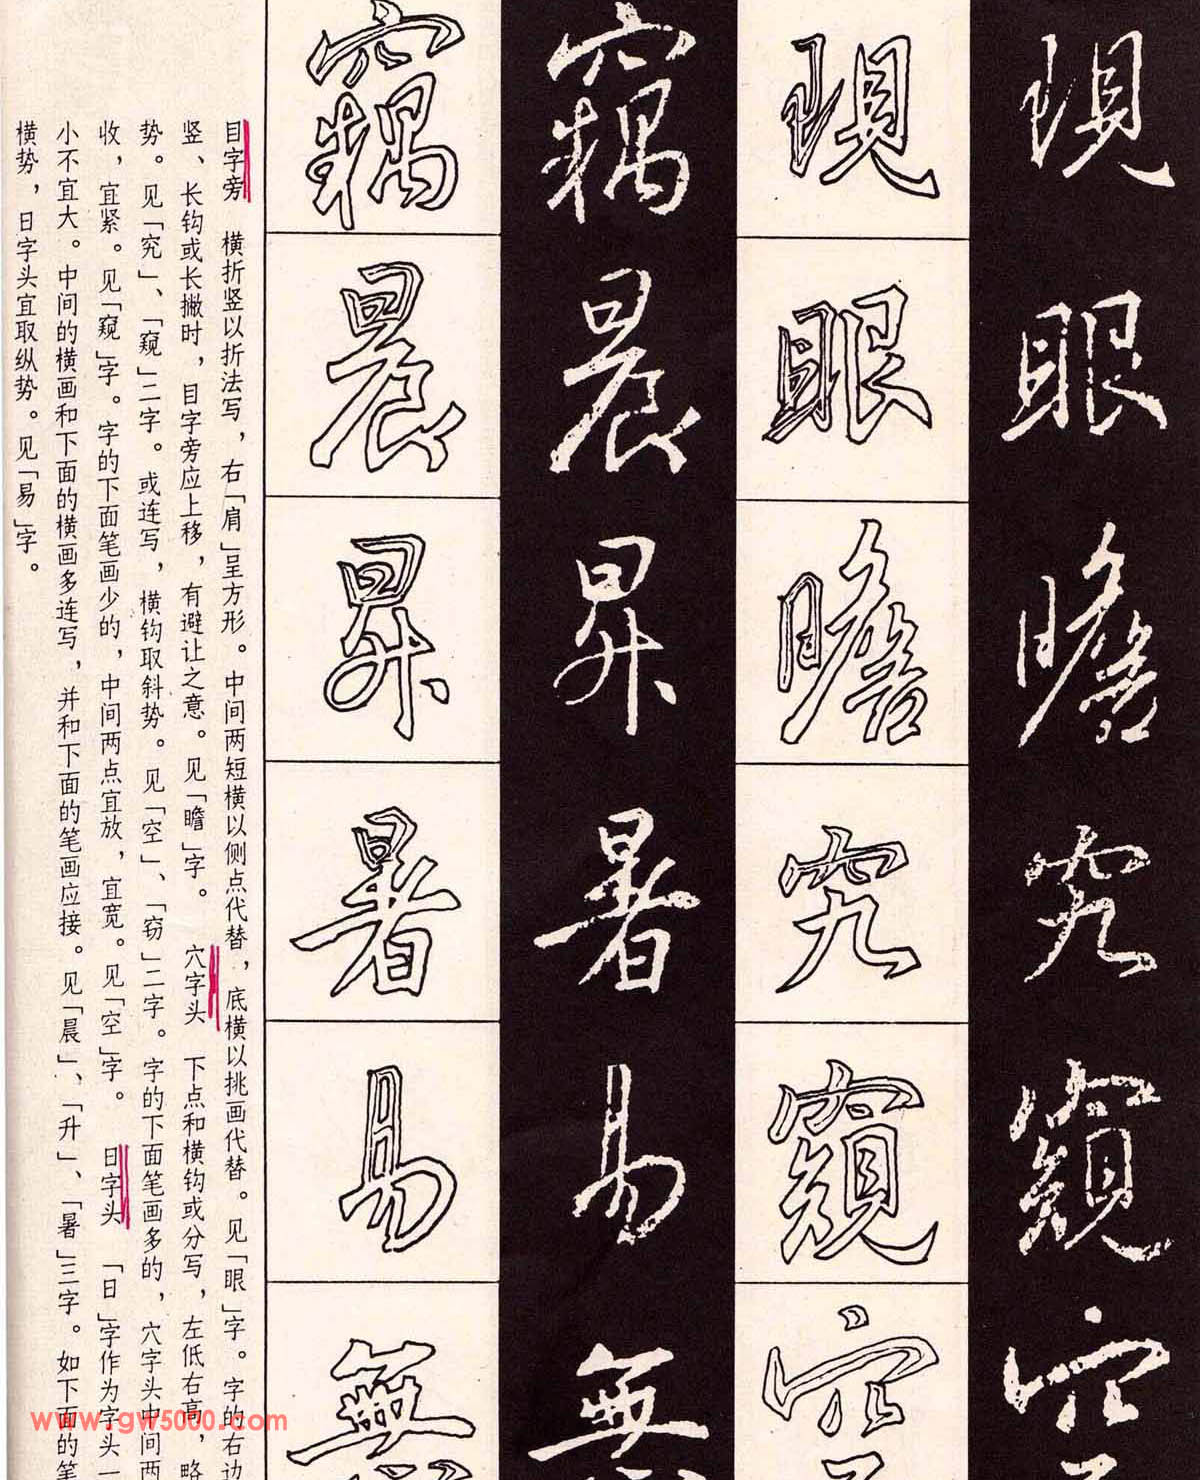 现
眼
瞻
究
窥
空
窃
晨
昇
暑
易
無
目字旁 横折竖以折法写，右「肩」呈方形。中间两短横以侧点代替，底横以挑画代替。见「眼」字。字的右边
竖、长钩或长撇时，目字旁应上移，有避让之意。见「瞻」字。 穴字头 下点和横钩或分写，左低右高，略
势。见「究」、「窥」二字。或连写，横钩取斜势。见「空」、「窃」二字。字的下面笔画多的，穴字头中间两
收，宜紧。见「窥」字。字的下面笔画少的，中间两点宜放，宜宽。见「空」字。 日字头 「日」字作为字头一
小不宜大。中间的横画和下面的横画多连写，并和下面的笔画应接。见「晨」、「升」、「暑」三字。如下面的笔
横势，日字头宜取纵势。见「易」字。
www.gw5000.com